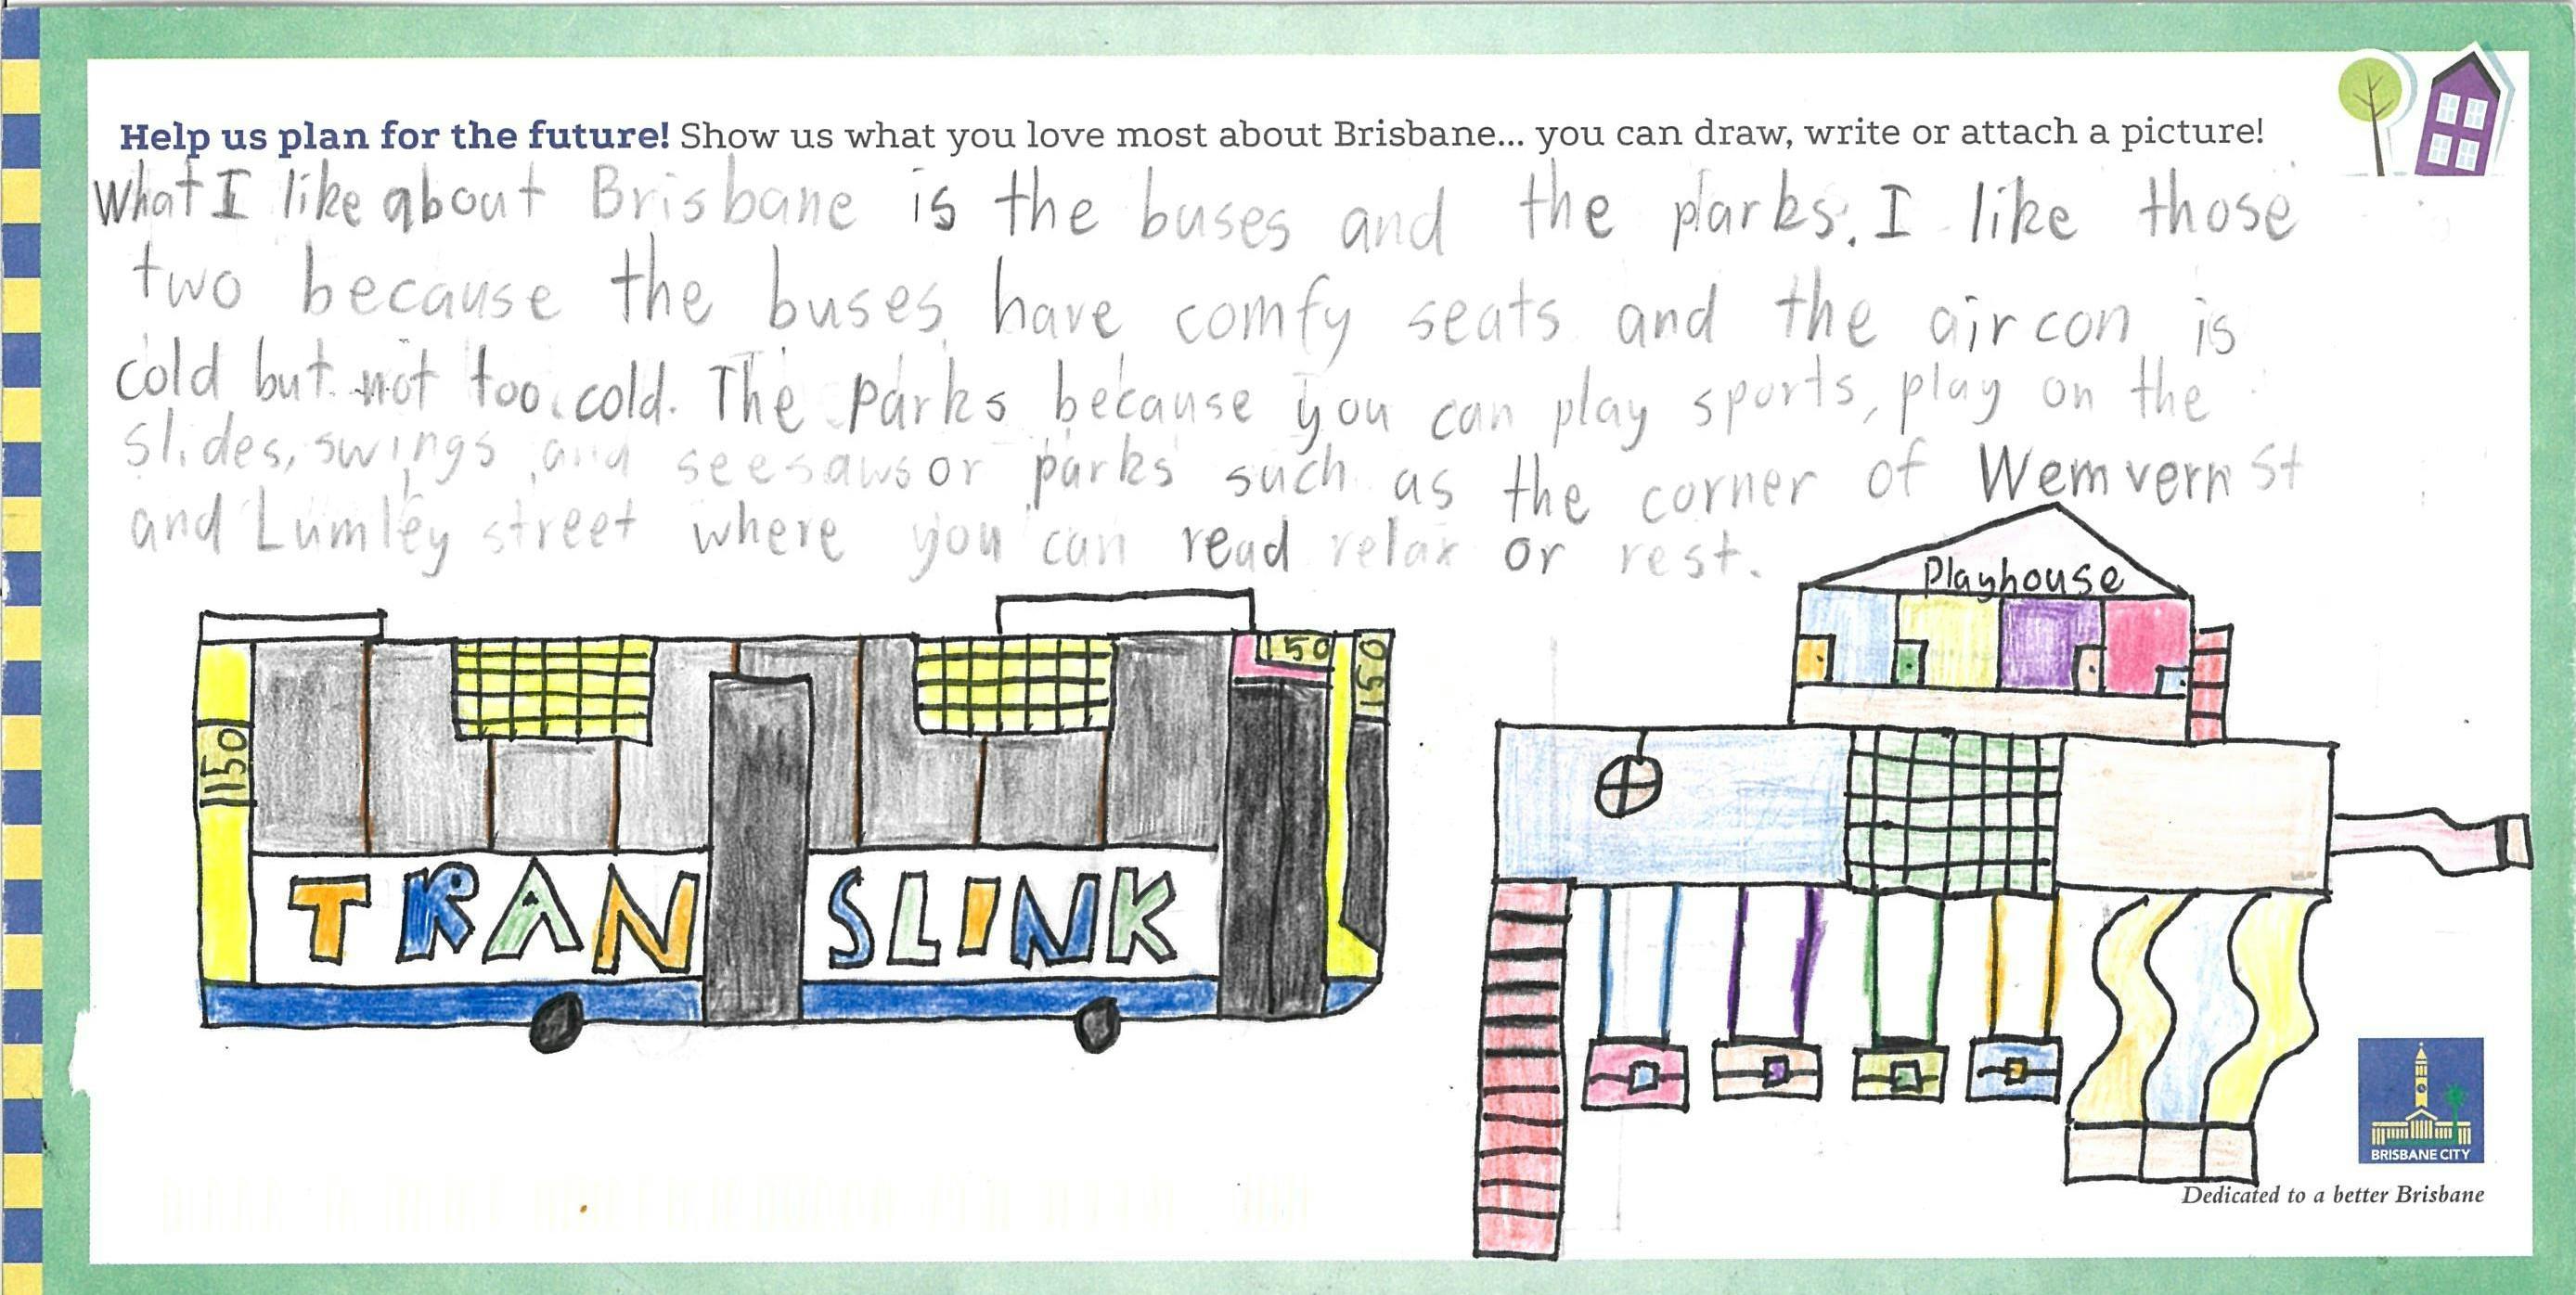 Help us plan for the future! Show us what you love most about Brisbane... you can draw, write or attach a picture!
What I like about Brisbane is the buses and the parks. I like those
two because the buses have comfy seats and the aircon is
cold but not too cold. The parks because you can play sports, play on the
slides, swings and seesaws or parks such as the corner of Wemvern St
and Lumley street where you can read relax or rest.
Playhouse
150
150
150
TRANSLINK
BRISBANE CITY
Dedicated to a better Brisbane